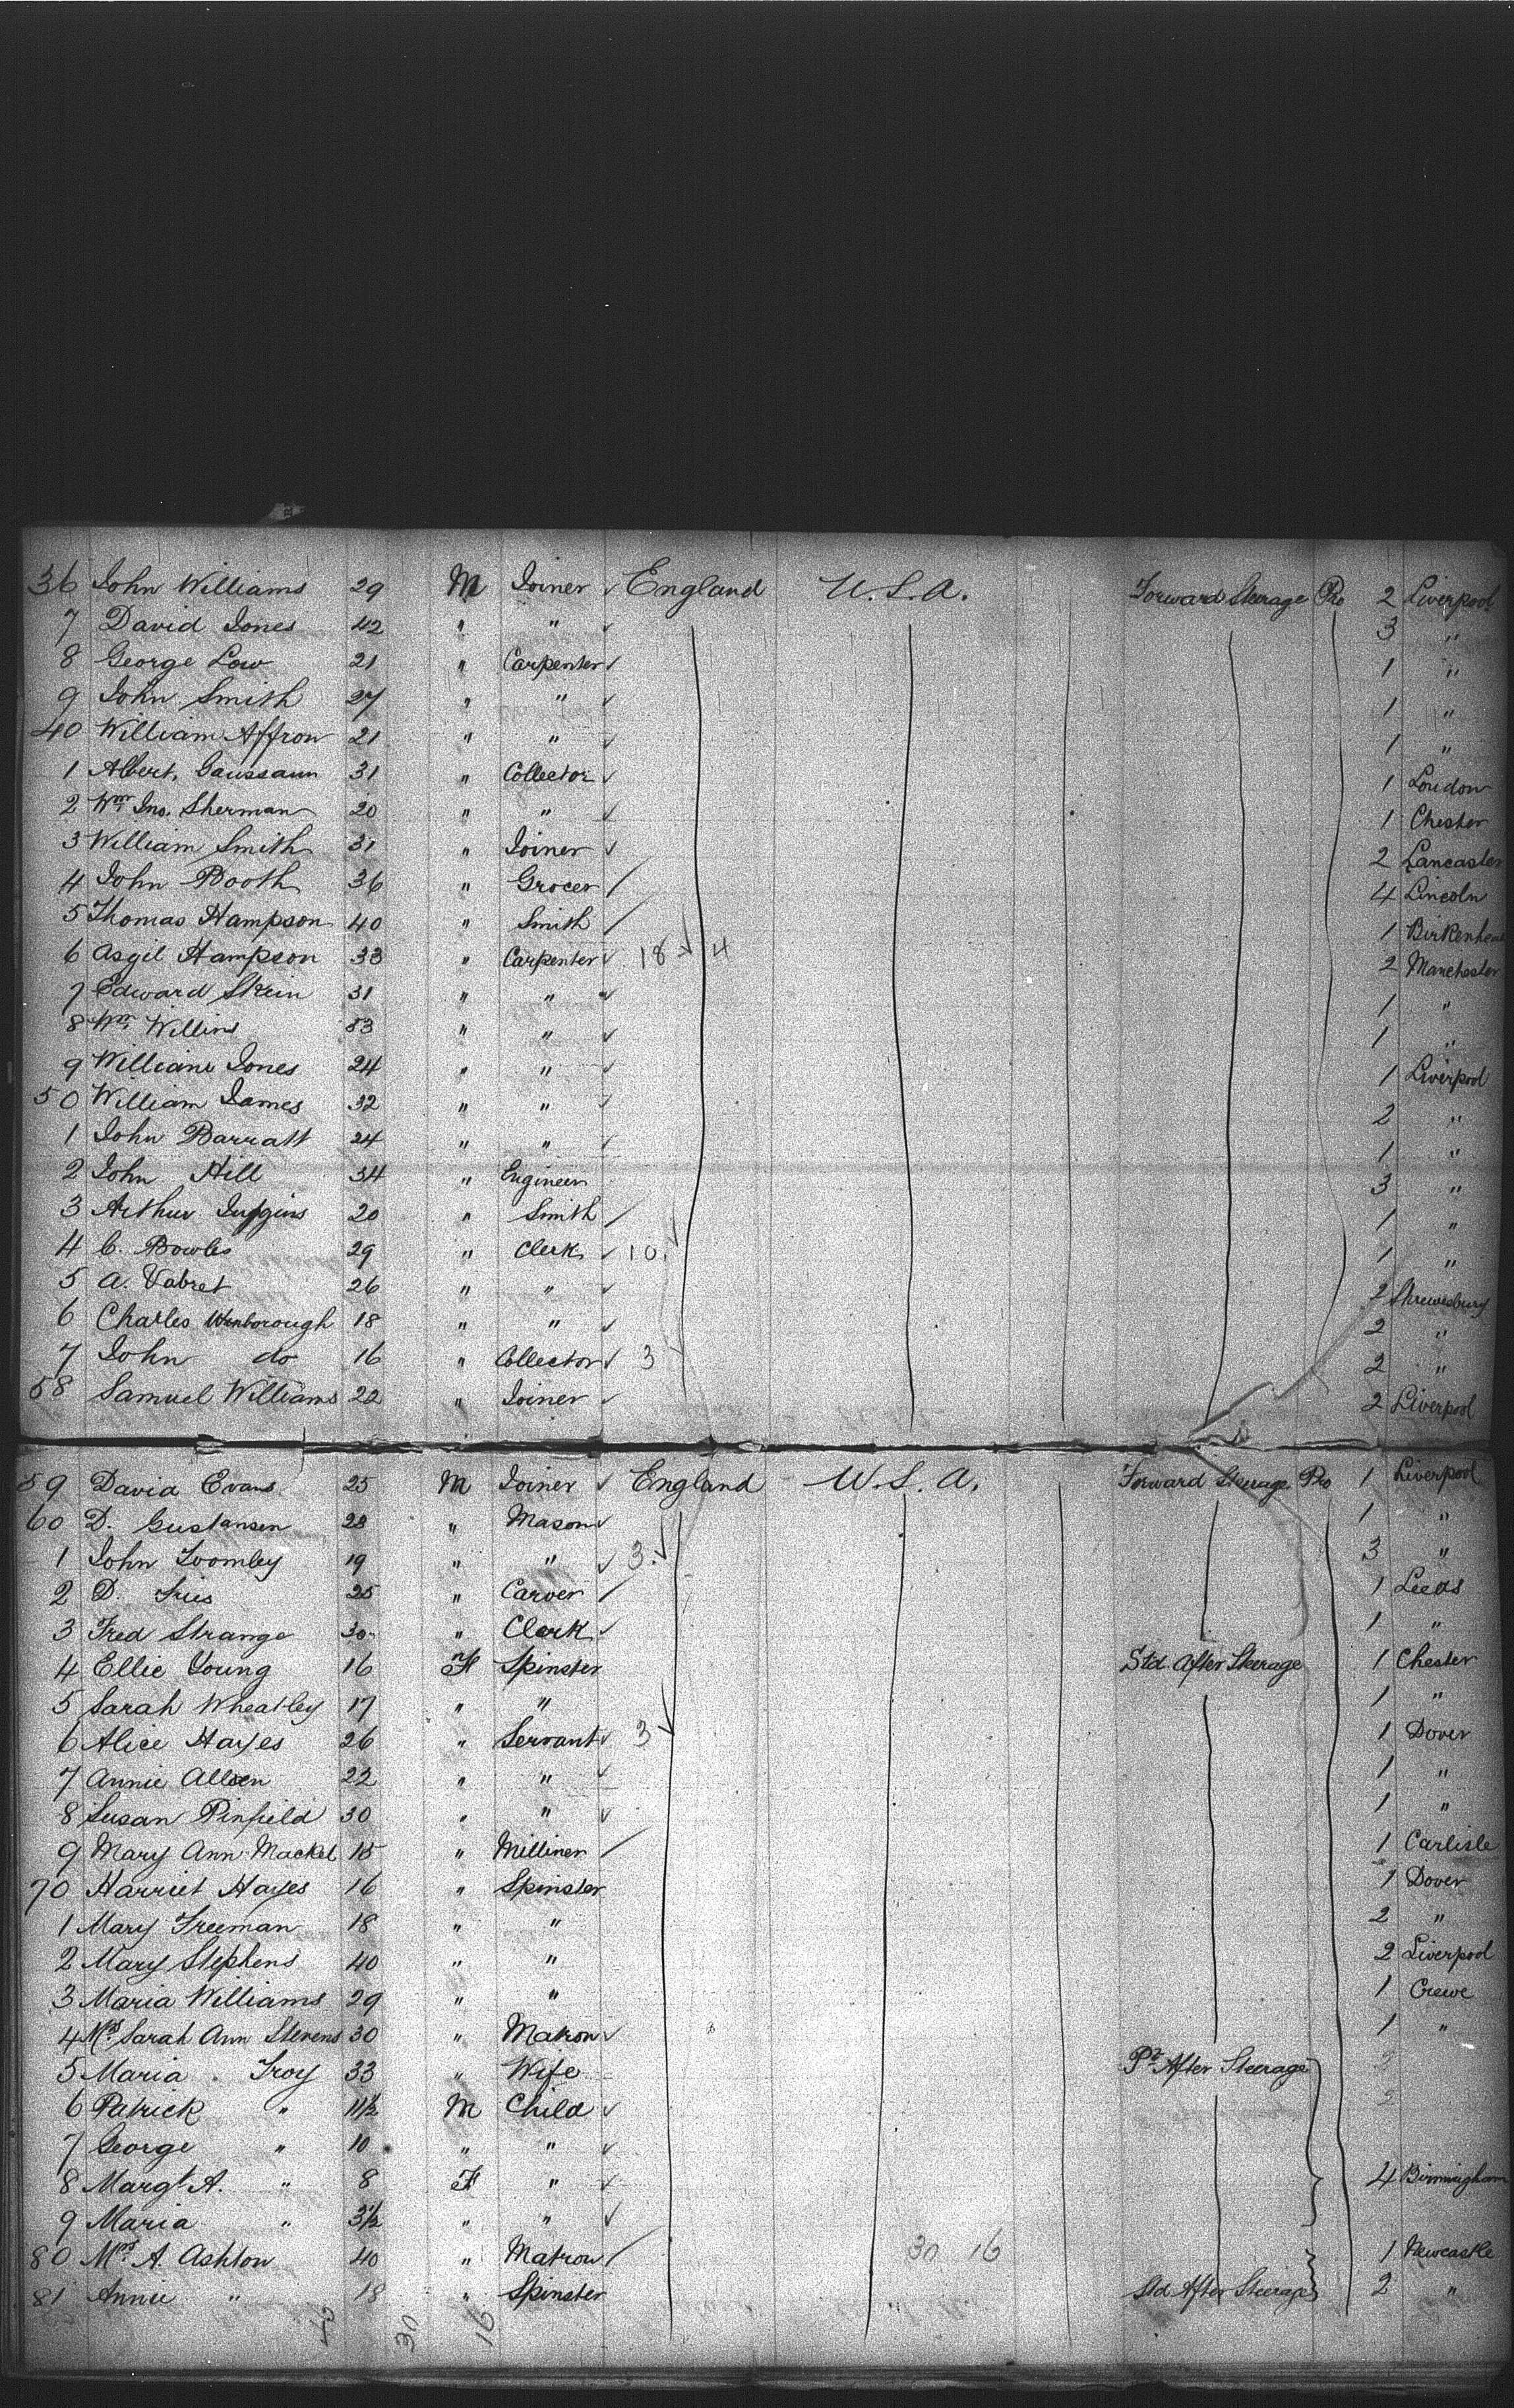 36 John Williams 29 M Joiner ✓ England U.S.A. Forward Steerage Pro 2 Liverpool
7 David Jones 42 " " ✓ 3 "
8 George Low 21 " Carpenter ✓ 1 "
9 John Smith 27 " " ✓ 1 "
40 William Affron 21 " " ✓ 1 "
1 Albert, Gaussaun 31 " Collector ✓ 1 London
2 Wm Jno. Sherman 20 " " ✓ 1 Chester
3 William Smith 31 " Joiner ✓ 2 Lancaster
4 John Booth 36 " Grocer / 4 Lincoln
5 Thomas Hampson 40 " Smith / 1 Birkenhead
6 Asgil Hampson 33 " Carpenter ✓ 18 ✓ 4 2 Manchester
7 Edward Skein 31 " " ✓ 1 "
8 Wm Willins " " ✓ 1 "
9 William Jones 24 " " ✓ 1 Liverpool
50 William James 32 " " ✓ 2 "
1 John Barratt 24 " " ✓ 1 "
2 John Hill 34 " Engineer 3 "
3 Arthur 20 " Smith / 1 "
4 C. Bowles 29 " Clerk ✓ 10 ✓ 1 "
5 A. Vabret 26 " " ✓ 2 Shrewsbury
6 Charles Wenborough 18 " " ✓ 2 "
7 John do 16 " Collector ✓ 3 2 "
58 Samuel Williams 22 " Joiner ✓ 2 Liverpool
59 David Evans 25 M Joiner ✓ England U.S.A. Forward Steerage Pro 1 Liverpool
60 D. Gustansen 28 " Mason ✓ 1 "
1 John Toomley 19 " " ✓ 3 ✓ 3 "
2 D. 25 " Carver / 1 Leeds
3 Fred Strange 30 " Clerk ✓ 1 "
4 Ellie Young 16 F Spinster Std. After Steerage 1 Chester
5 Sarah Wheatley 17 " " 1 "
6 Alice Hayes 26 " Servant ✓ 3 ✓ 1 Dover
7 Annie Allen 22 " " ✓ 1 "
8 Susan Pinfield 30 " " ✓ 1 "
9 Mary Ann Mackel 15 " Milliner / 1 Carlisle
70 Harriet Hayes 16 " Spinster 1 Dover
1 Mary Freeman 18 " " 2 "
2 Mary Stephens 40 " " 2 Liverpool
3 Maria Williams 29 " " 1 Crewe
4 Mrs Sarah Ann Stevens 30 " Matron ✓ 1 "
5 Maria Troy 33 " Wife After Steerage
6 Patrick " 11½ M Child ✓ 2
7 George " 10 " " ✓
8 Margt A. " 8 F " ✓ 4 Birmingham
9 Maria " 3½ " " ✓
80 Mrs A. Ashton 40 " Matron / 30 16 1 Newcastle
81 Annie " 18 " Spinster Std After Steerage 2 "
30 16